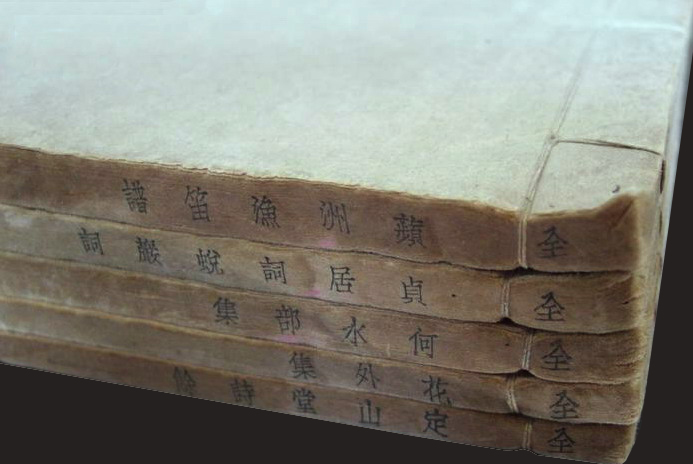 全 蘋洲漁笛譜
全 貞居詞 蛻巖詞
全 何水部集
全 花外集
全 定山堂詩餘